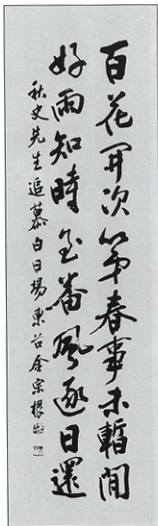 百花開次第春事未暫閒
好雨知時至番風逐日還
秋史先生追慕白日場 金宗根